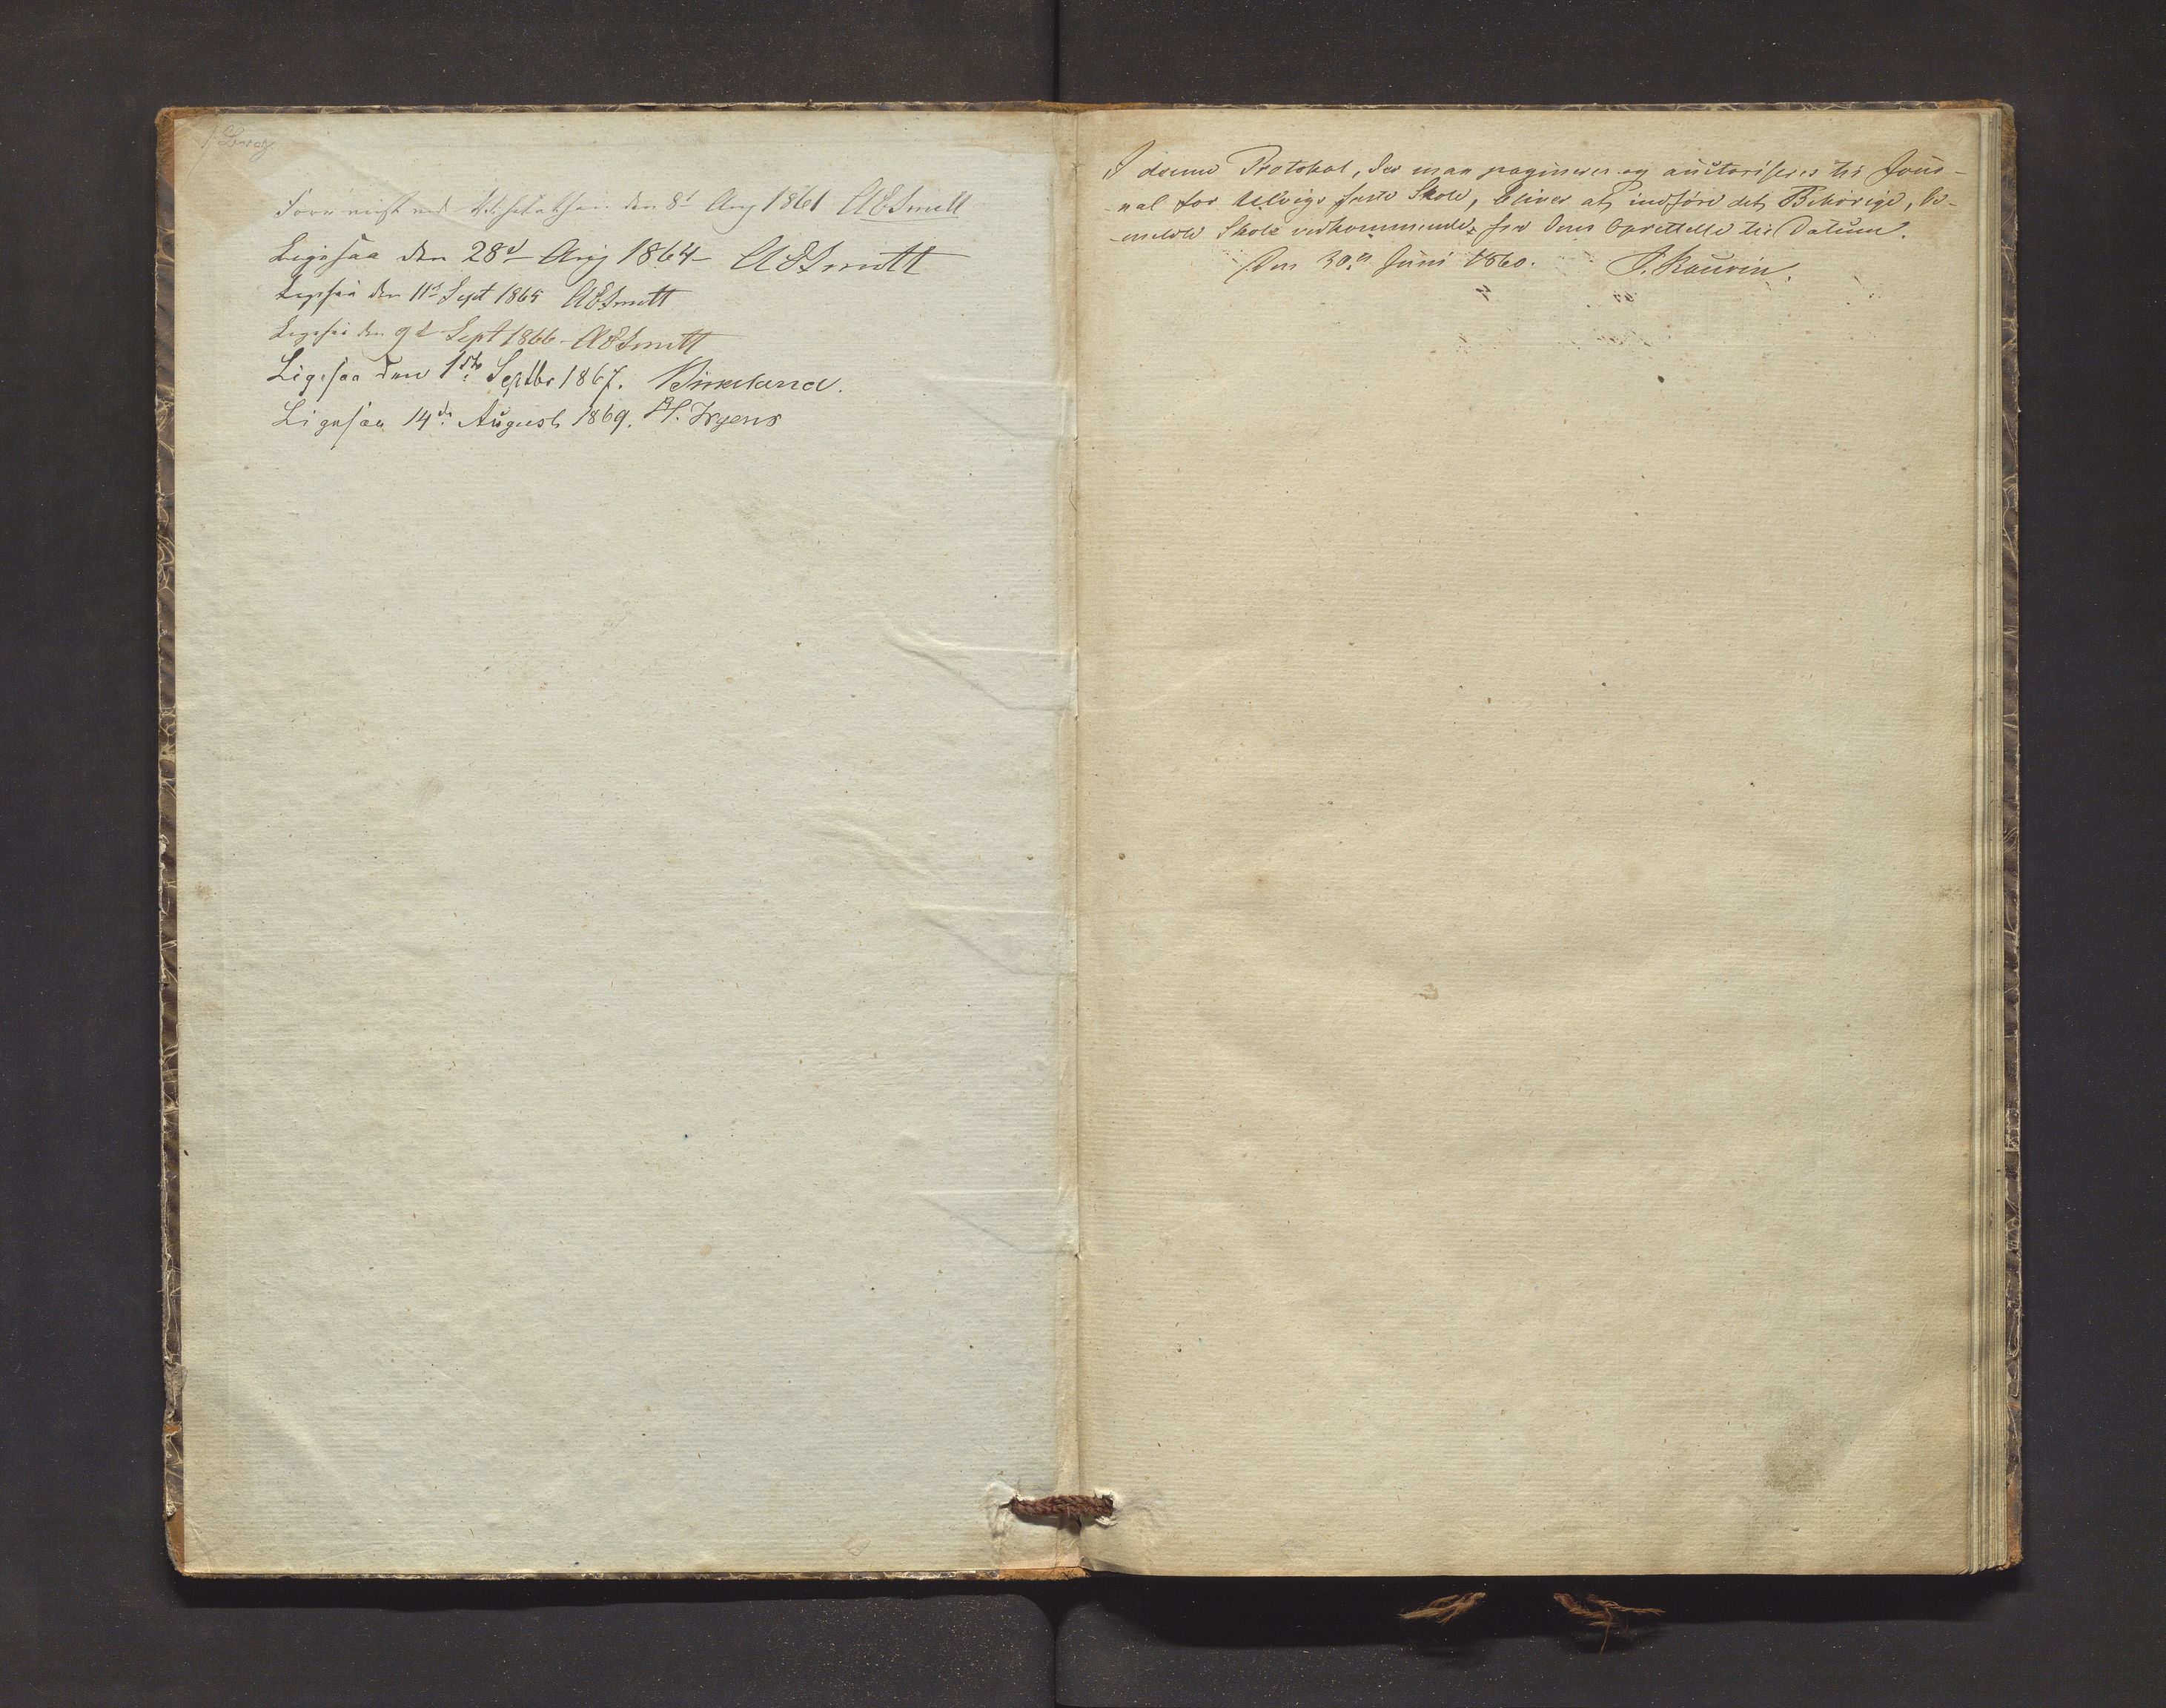 Forevist ved Visitatsen den 8d Aug 1861 AESmitt
Ligesaa den 28d Aug 1864 AESmitt
Ligesaa den 11t Sept 1865 AESmitt
Ligesaa den 9d Sept 1866 AESmitt
Ligesaa den 1ste Septbr 1867. Birkeland.
Ligesaa 14de August 1869. H. Irgens
I denne Protokol, der man paginerer og auctoriseres til Jour-
-nal for Ulvigs faste Skole, bliver at indføre det Behørige, be-
-meldte Skole vedkommende, fra dens Oprettelse til Datum.
Den 30te Juni 1860. J. Kaurin.